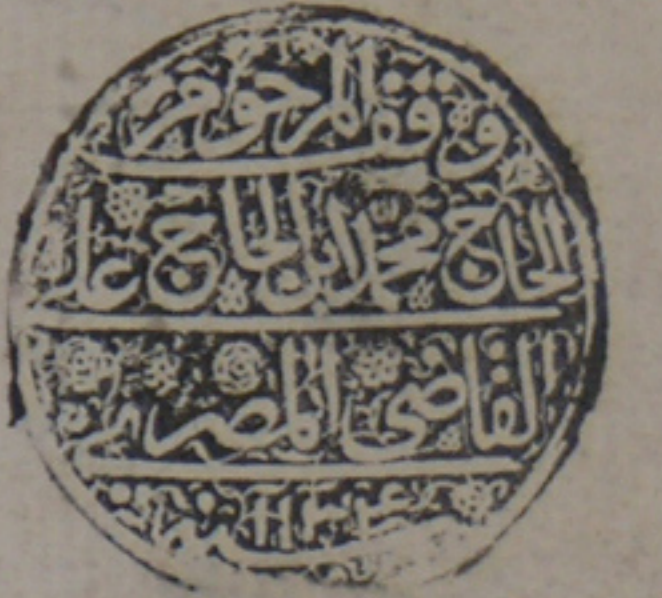 وقف المرحوم
الحاج محمد ابن الحاج علي
القاضي المصري
سنة